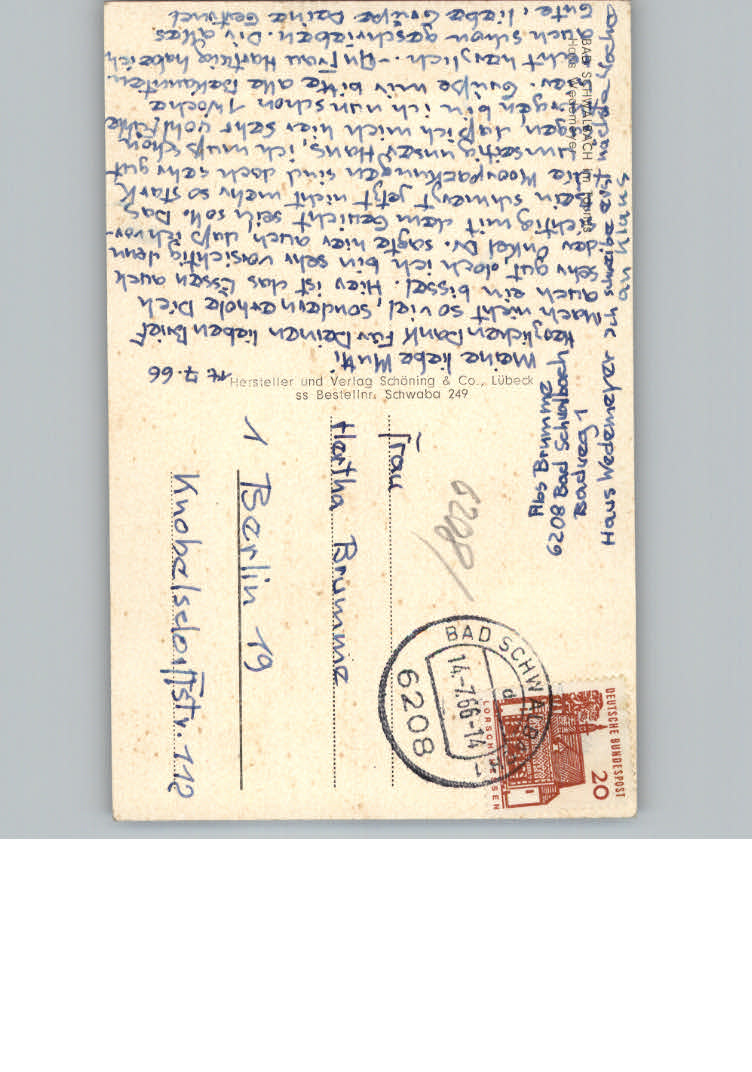 14.7.66
Meine liebe Mutti,
Herzlichen Dank für Deinen lieben Brief
Mach nicht so viel, sondern erhole Dich
auch ein bissel. Hier ist das Essen auch
sehr gut doch bin ich sehr vorsichtig denn
der Onkel Dr. sagte hier auch daß ich vor-
sichtig mit dem Gewicht sein soll. Das
Bein schmerzt jetzt nicht mehr so stark
die Moorpackungen sind doch sehr gut
unseitig unser Haus, ich muß schon
sagen daß ich mich hier sehr wohl fühle
Morgen bin ich nun schon 1 Woche
hier. Grüße mir bitte alle Bekannten
recht herzlich. - An Frau Hartwig habe ich
auch schon geschrieben. Dir alles
Gute, liebe Grüße Deine Gertrud
Ich schreibe erst nächste Woche
an Klaus
BAD SCHWALBACH im Taunus
Haus Wedemeyer
Hersteller und Verlag Schöning & Co., Lübeck
ss Bestellnr. Schwaba 249
Abs Brumme
6208 Bad Schwalbach
Badweg 1
Haus Wedemeyer
6208/
Frau
Hertha Brumme
1 Berlin 19
Knobelsdorffstr. 112
BAD SCHWALBACH
14.-7.66-14
6208
DEUTSCHE BUNDESPOST
20
LORSCH HESSEN